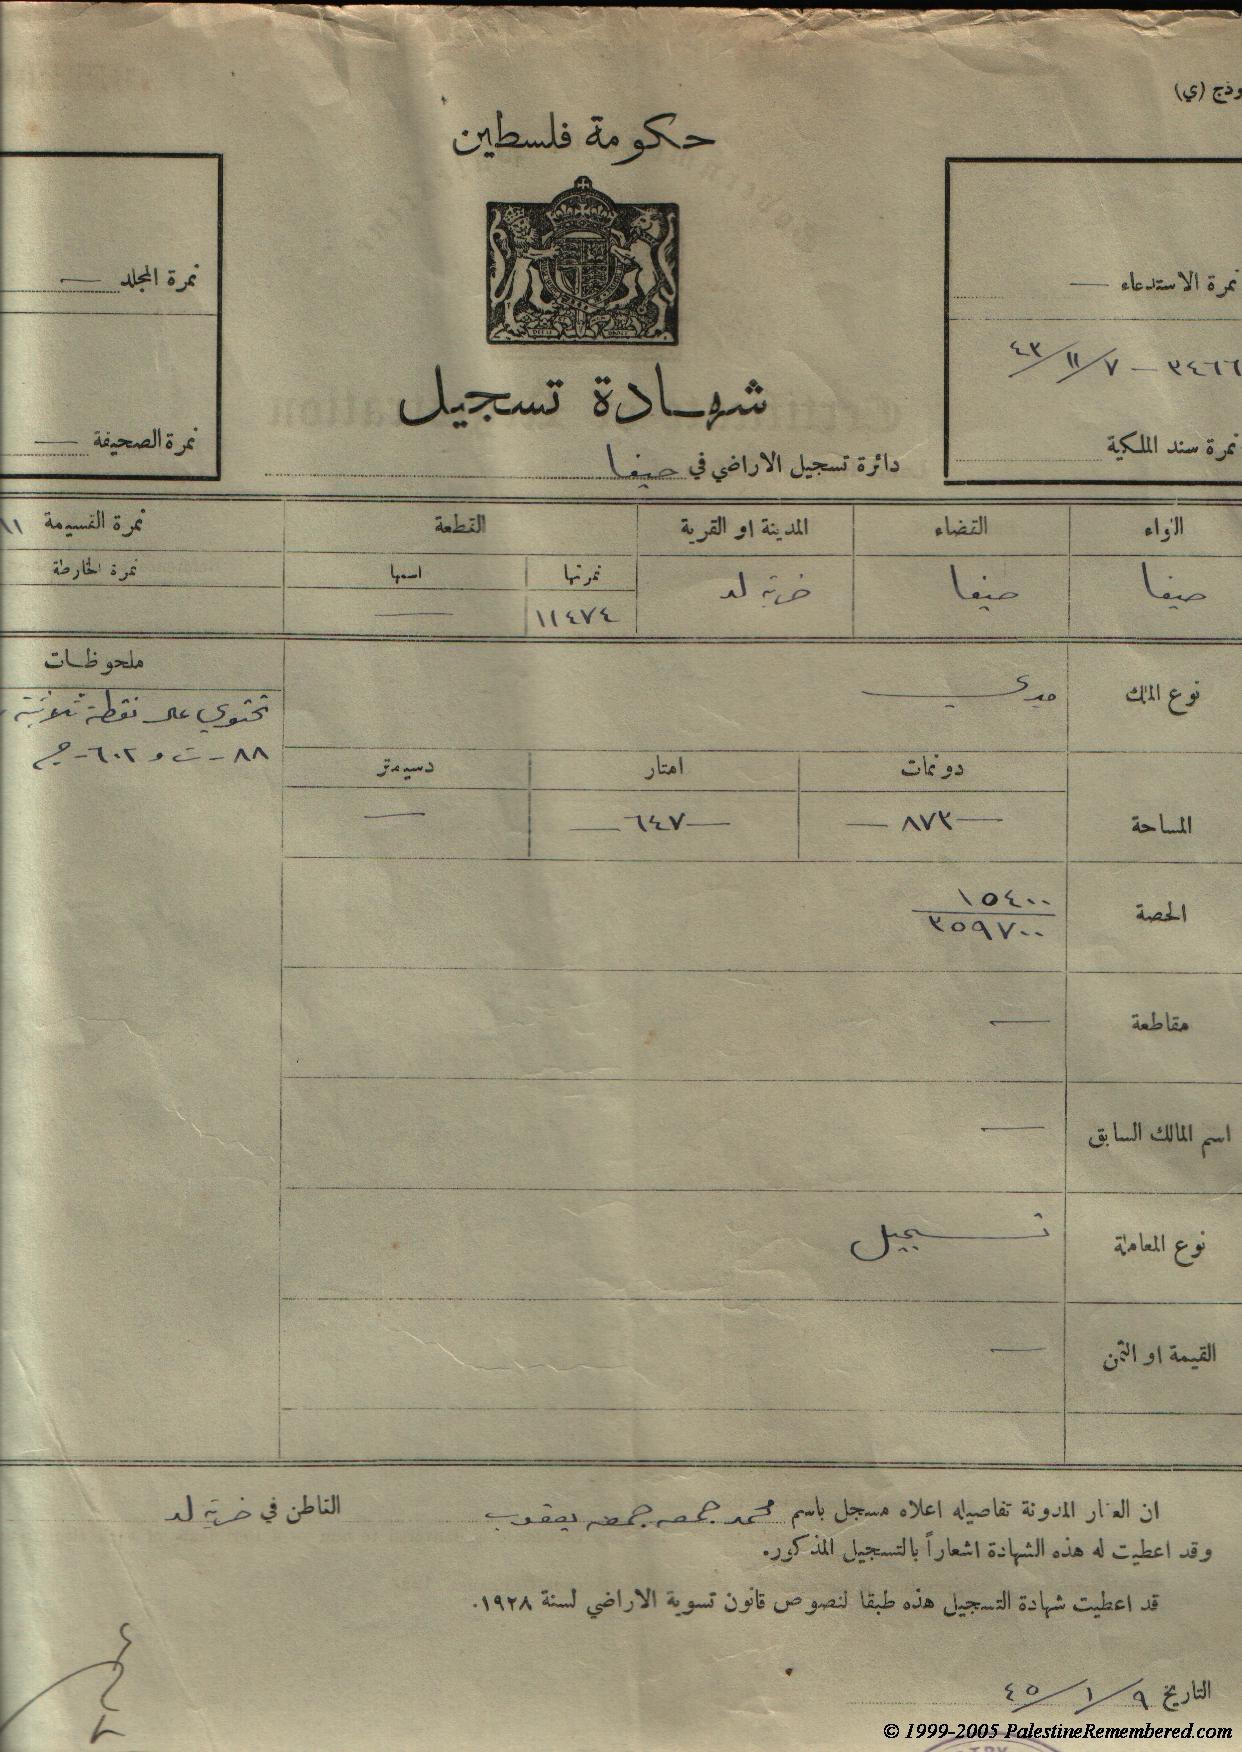 وذج (ي)
حكومة فلسطين
نمرة الاستدعاء —
نمرة المجلد —
٣٤٦٦ — ٧/١١/٤٣
شهادة تسجيل
نمرة سند الملكية
نمرة الصحيفة —
دائرة تسجيل الاراضي في حيفا
اللواء القضاء المدينة او القرية القطعة نمرة القسيمة
نمرتها اسمها نمرة الخارطة
حيفا حيفا خربة لد ١١٤٧٤ —
نوع الملك ميري
ملحوظات
تحتوي على نقطة ثلاثية
٨٨ - ت و ٦٠٢ - ج
دونمات امتار دسيمتر
المساحة — ٨٧٣ — — ٦٤٧ — —
الحصة ١٥٤٠٠
٣٥٩٧٠٠
مقاطعة —
اسم المالك السابق —
نوع المعاملة تسجيل
القيمة او الثمن —
ان العقار المدونة تفاصيله اعلاه مسجل باسم محمد جمعه جمعه يعقوب القاطن في خربة لد
وقد اعطيت له هذه الشهادة اشعاراً بالتسجيل المذكور.
قد اعطيت شهادة التسجيل هذه طبقا لنصوص قانون تسوية الاراضي لسنة ١٩٢٨.
التاريخ ٩/١/٤٥
© 1999-2005 PalestineRemembered.com